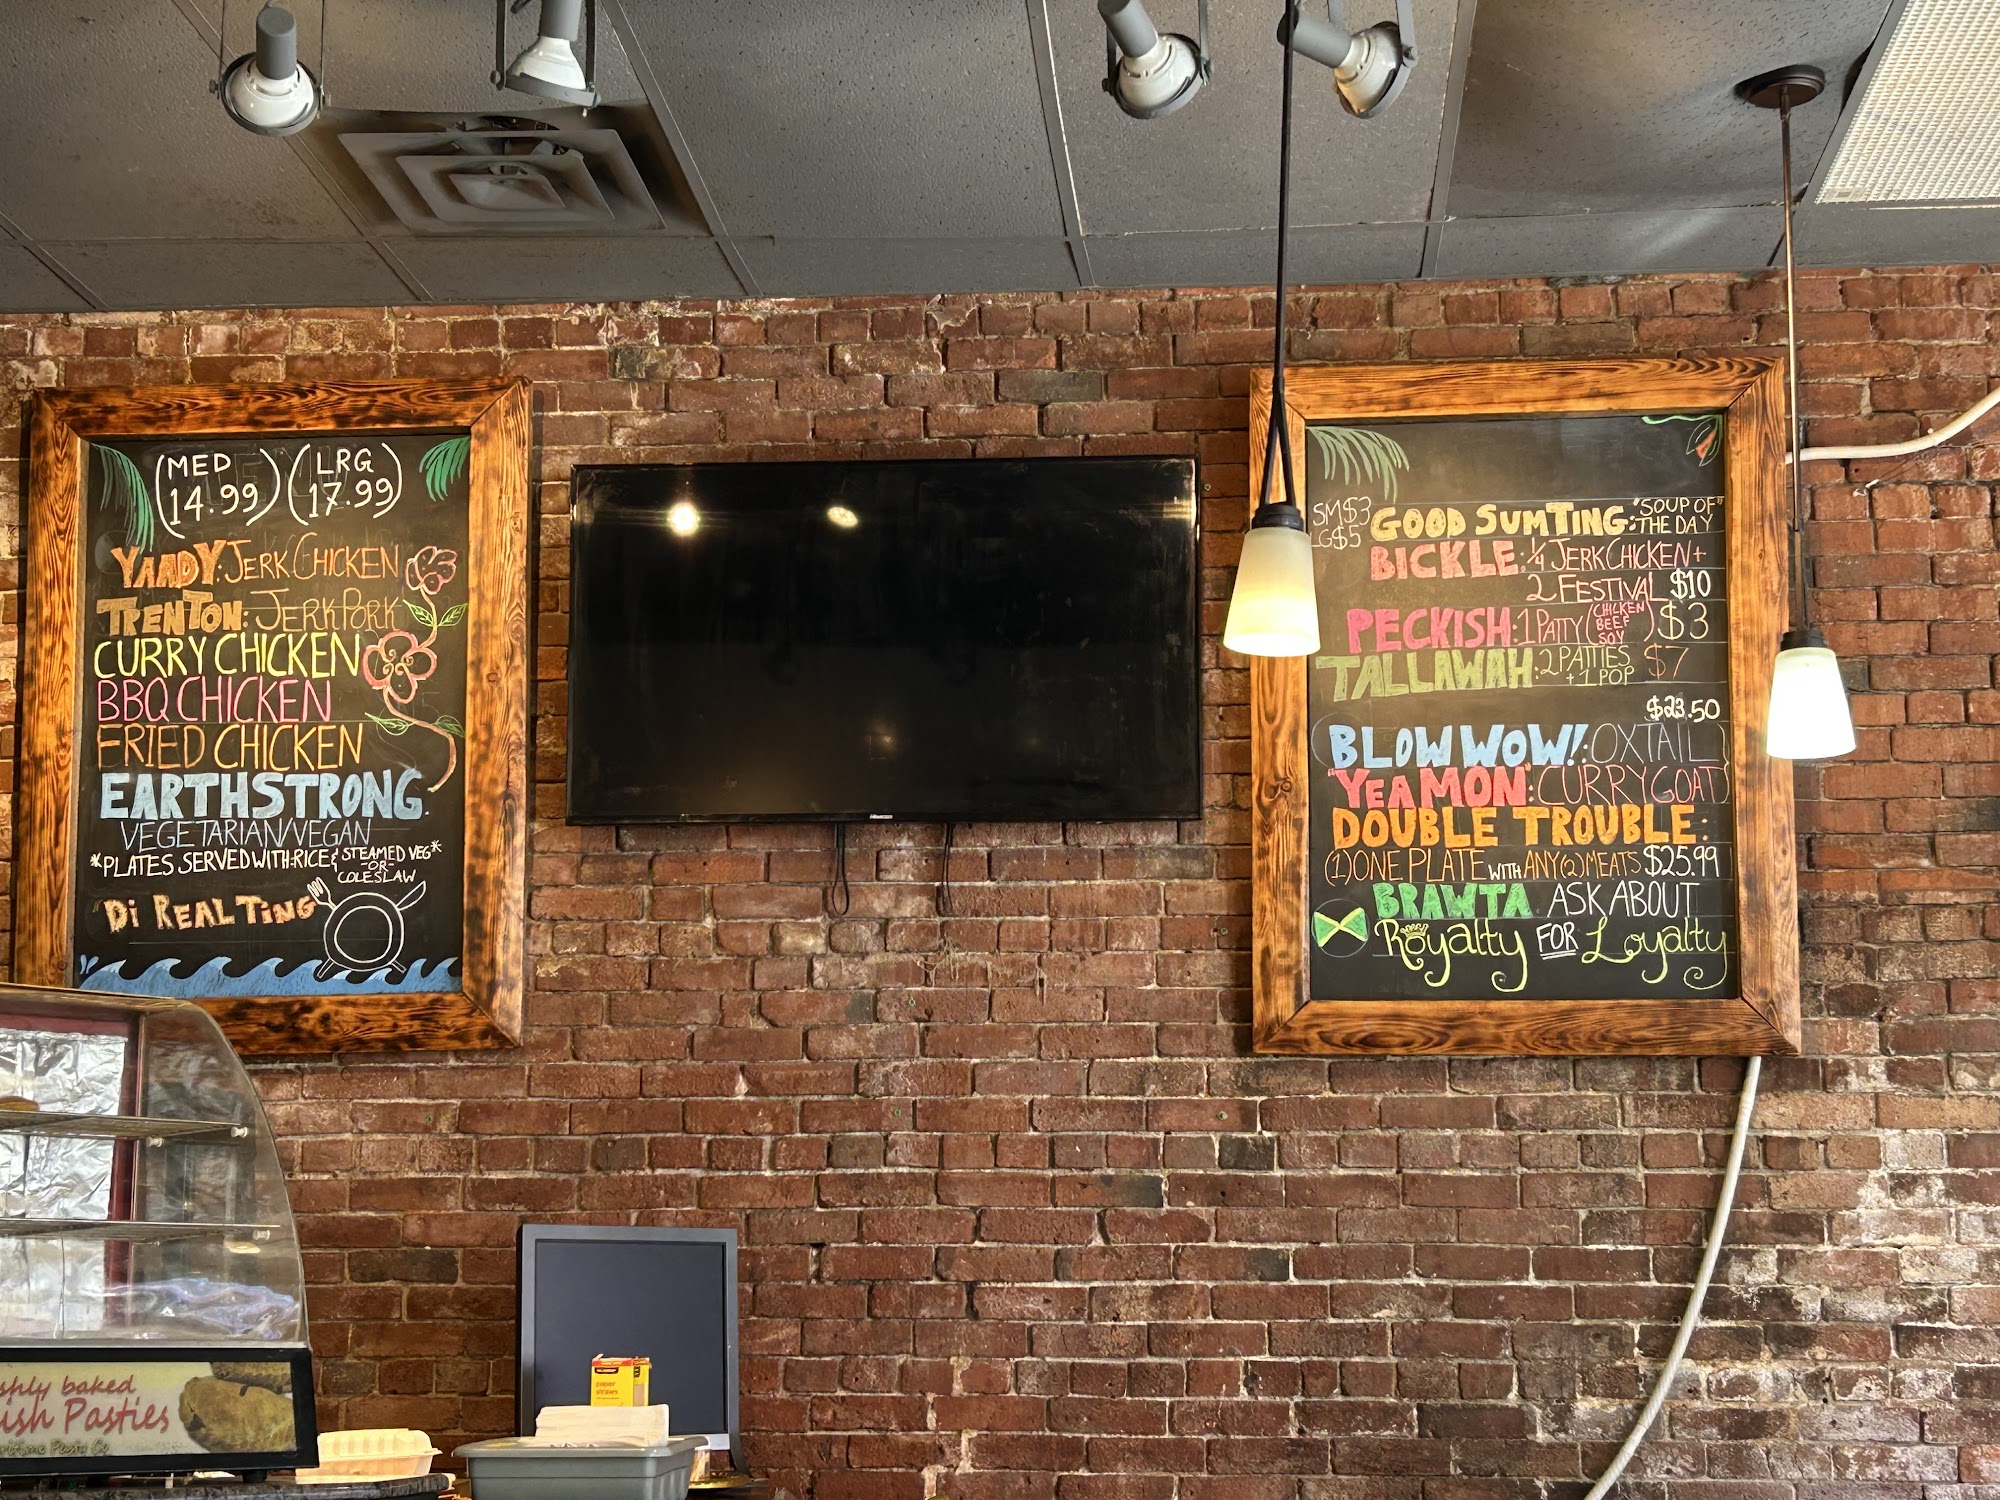 (MED 14.99) (LRG 17.99)
YAADY: JERK CHICKEN
TRENTON: JERK PORK
CURRY CHICKEN
BBQ CHICKEN
FRIED CHICKEN
EARTHSTRONG:
VEGETARIAN/VEGAN
*PLATES SERVED WITH RICE & STEAMED VEG*
-OR-
COLESLAW
"Di REAL TING
SM$3
LG$5
GOOD SUMTING: "SOUP OF THE DAY"
BICKLE: 1/4 JERK CHICKEN +
2 FESTIVAL $10
PECKISH: 1 PATTY (CHICKEN BEEF SOY) $3
TALLAWAH: 2 PATTIES + 1 POP $7
$23.50
BLOW WOW!: OXTAIL
"YEA MON": CURRY GOAT
DOUBLE TROUBLE:
(1) ONE PLATE WITH ANY (2) MEATS $25.99
BRAWTA ASK ABOUT
Royalty FOR Loyalty
baked
Pasties
paper
straws